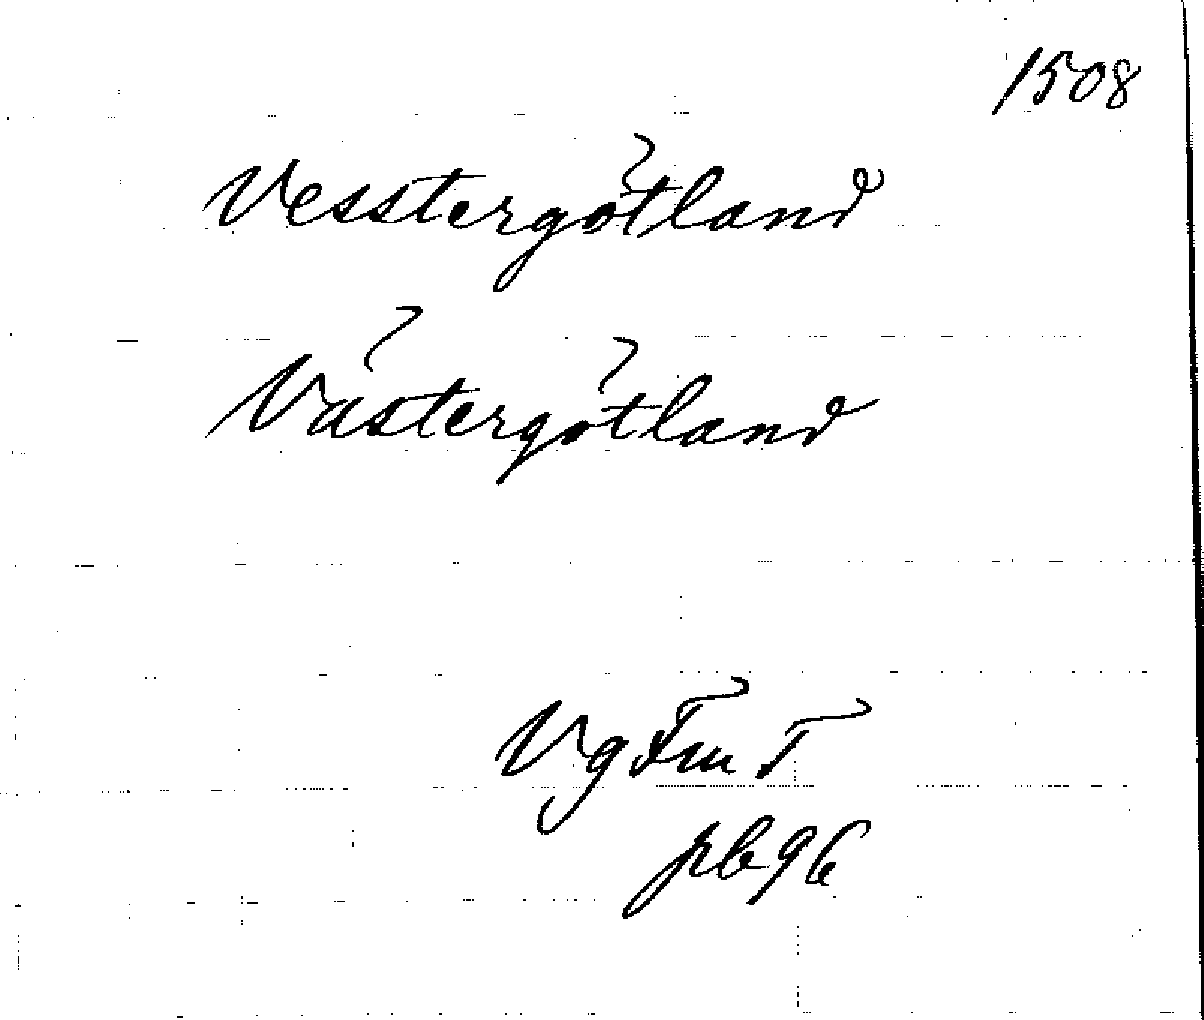 1508
Vesstergötland
Västergötland
VgFmT
pb96